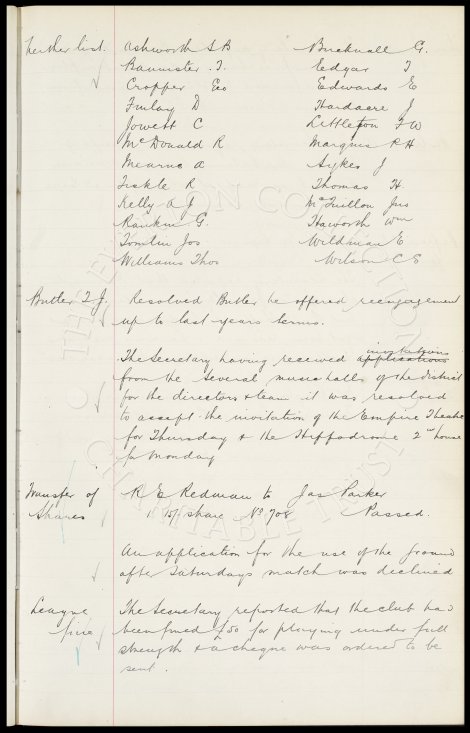 further list. Ashworth S B Bucknall G.
Bannister. T. Edgar T
Cropper Geo Edwards E
Finlay D Hardacre J
Jowett C Littleton F W
McDonald R Marquis P H
Mearns A Sykes J
Tickle R Thomas H
Kelly A J McQuillon Jas
Rankin G. Haworth Wm
Tomlin Jos Wildman E
Williams Thos Wilson C E
Butler T J. Resolved Butler be offered reengagement
up to last years terms.
invitations
The Secretary having received applications
from the several music halls of the district
for the directors & team it was resolved
to accept the invitation of the Empire Theatre
for Thursday & the Hippodrome 2nd house
for Monday
Transfer of R E Redman to Jas Parker
Shares 1 share No 708 Passed.
An application for the use of the ground
after Saturdays match was declined
League The Secretary reported that the club had
fine been fined £50 for playing under full
strength & a cheque was ordered to be
sent.
THE EVERTON COLLECTION
CHARITABLE TRUST